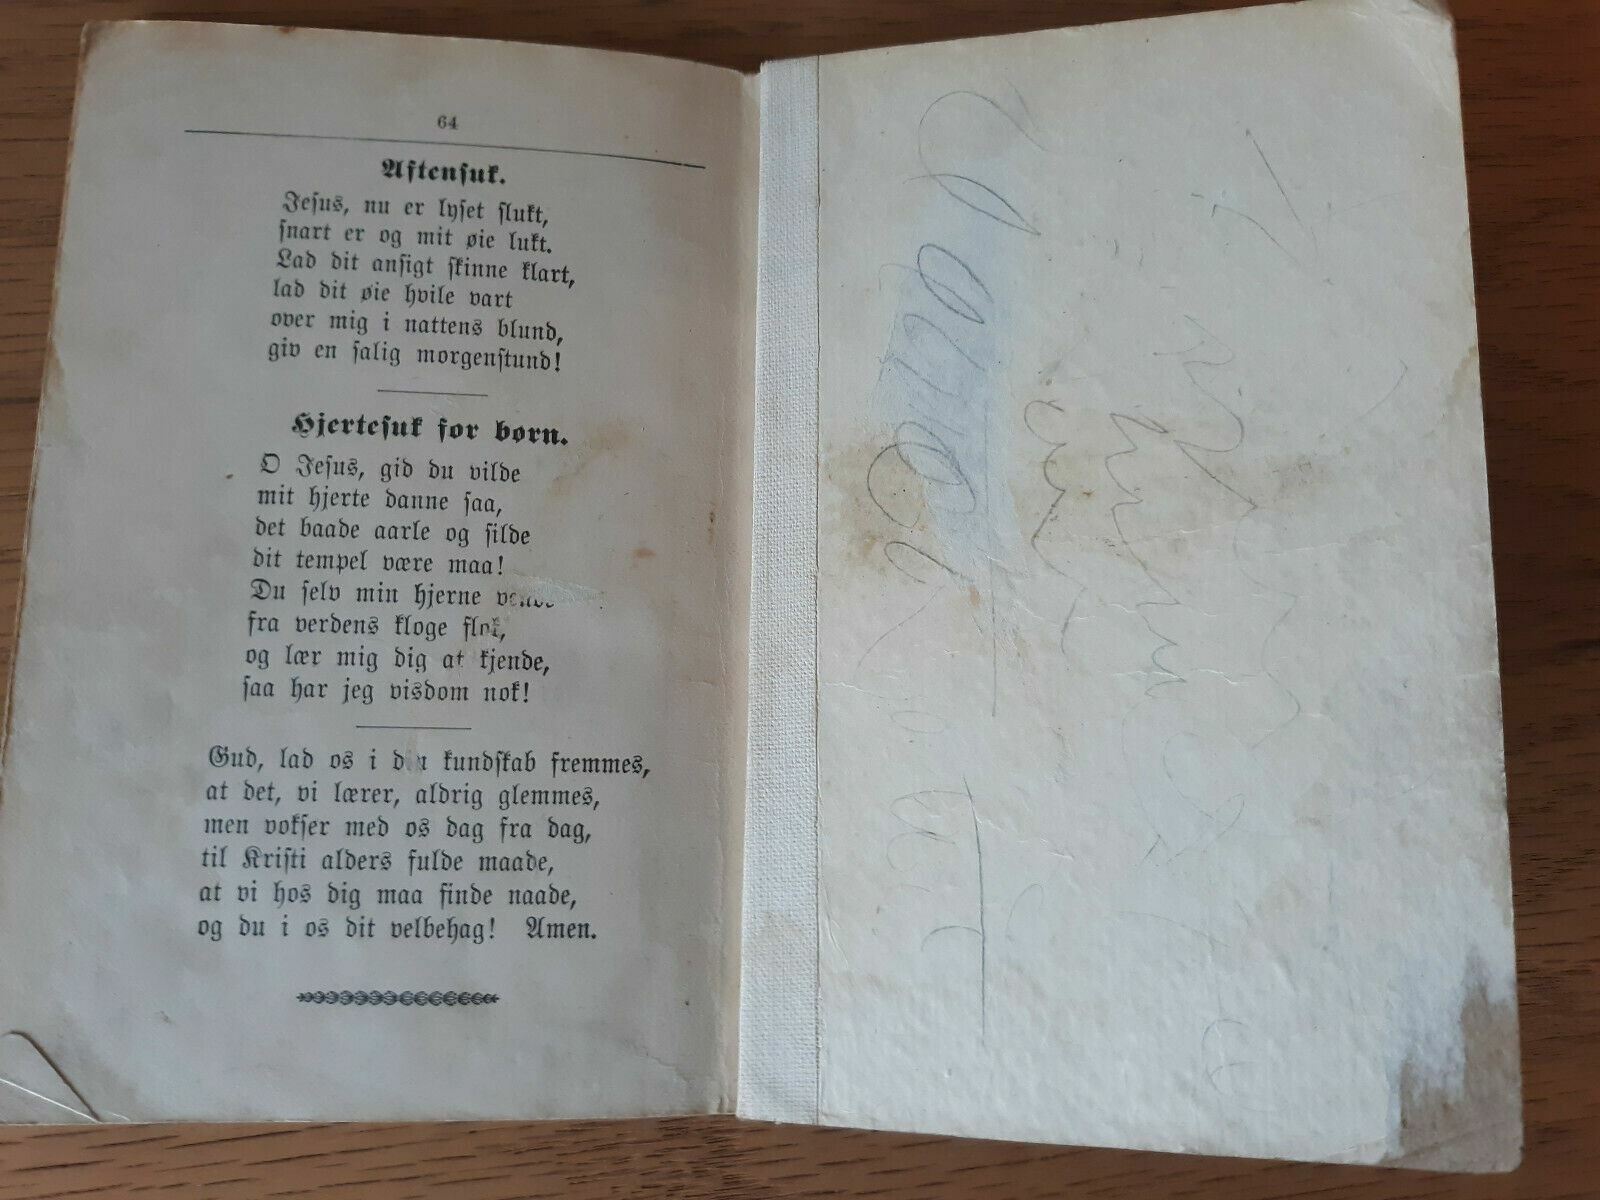 64
Aftensuk.
Jesus, nu er lyset slukt,
snart er og mit øie lukt.
Lad dit ansigt skinne klart,
lad dit øie hvile vart
over mig i nattens blund,
giv en salig morgenstund!
Hjertesuk for børn.
O Jesus, gid du vilde
mit hjerte danne saa,
det baade aarle og silde
dit tempel være maa!
Du selv min hjerne vende
fra verdens kloge flok,
og lær mig dig at kjende,
saa har jeg visdom nok!
Gud, lad os i din kundskab fremmes,
at det, vi lærer, aldrig glemmes,
men vokser med os dag fra dag,
til Kristi alders fulde maade,
at vi hos dig maa finde naade,
og du i os dit velbehag! Amen.